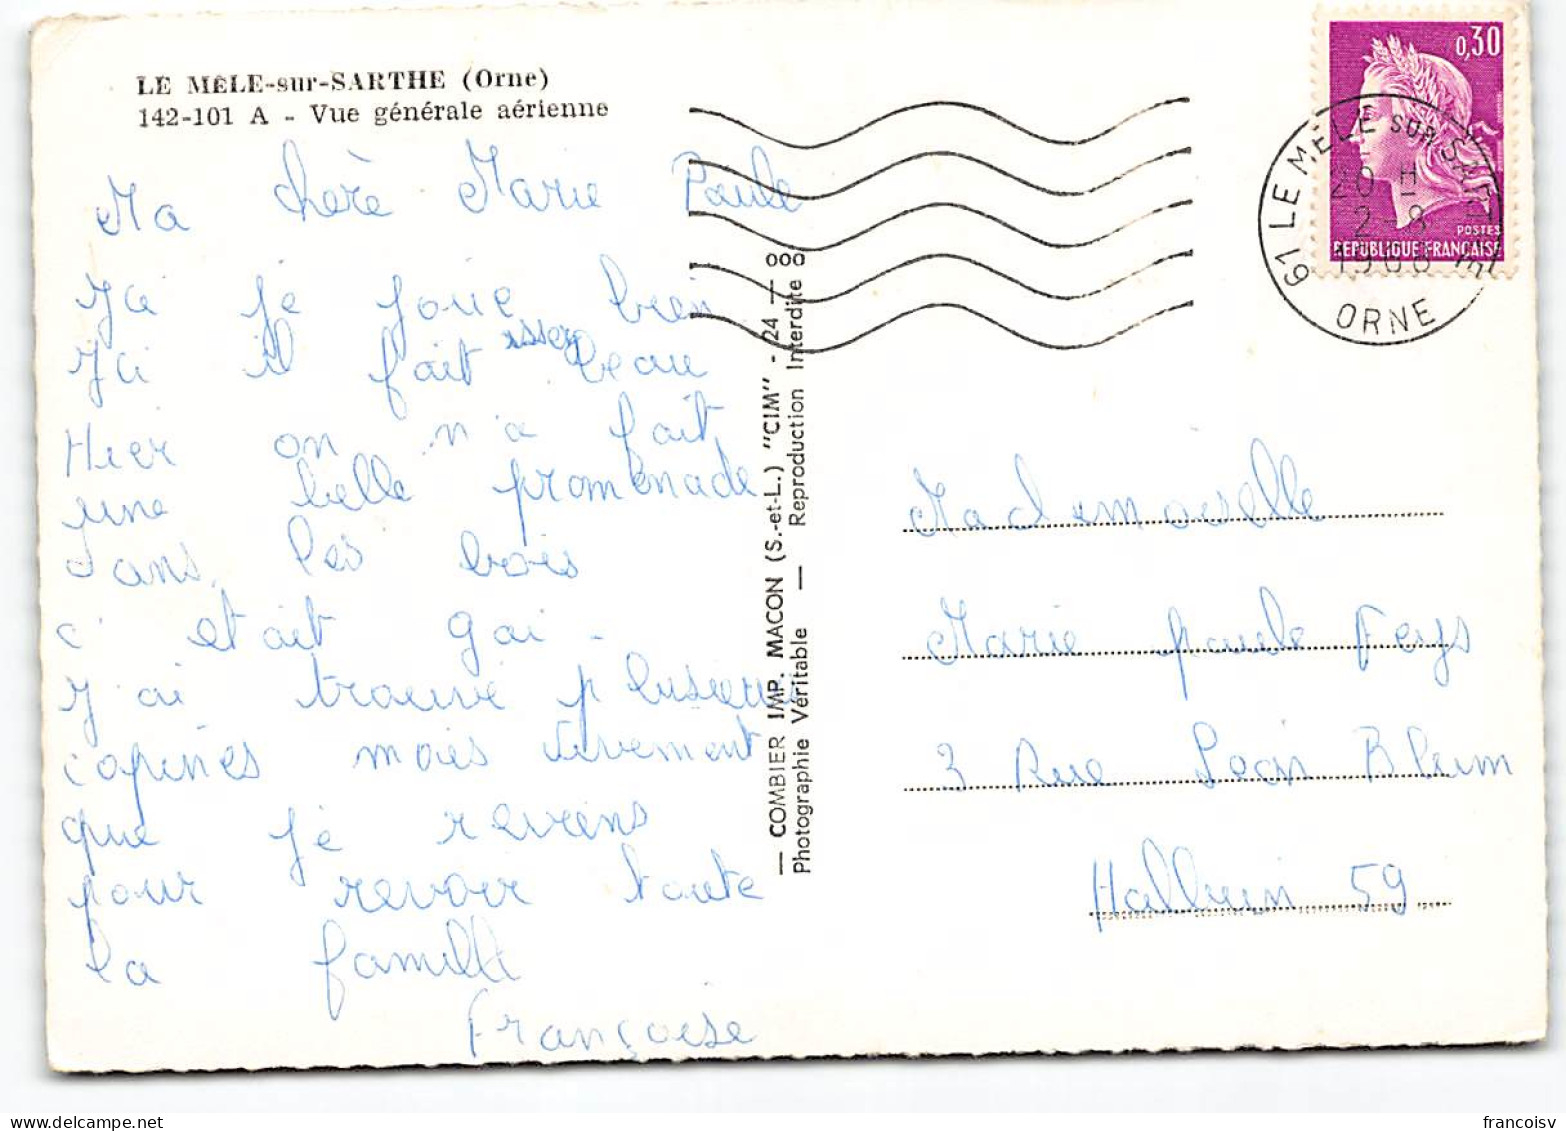 LE MÊLE-sur-SARTHE (Orne)
142-101 A - Vue générale aérienne
Ma chère Marie Paule
Ici je joue bien
Ici il fait assez beau
Hier on n'a fait
une belle promenade
dans les bois
c'etait gai -
J'ai trouvé plusieurs
copines mais vivement
que je reviens
pour revoir toute
la famille
Françoise
— COMBIER IMP. MACON (S.-et-L.) "CIM" - 24 — 000
Photographie Véritable — Reproduction Interdite
0,30
POSTES
REPUBLIQUE FRANÇAISE
61 LE MELE SUR SARTHE
20 H
2-8
ORNE
Mademoiselle
Marie paule Feys
3 Rue Léon Blum
Halluin 59
francoisv